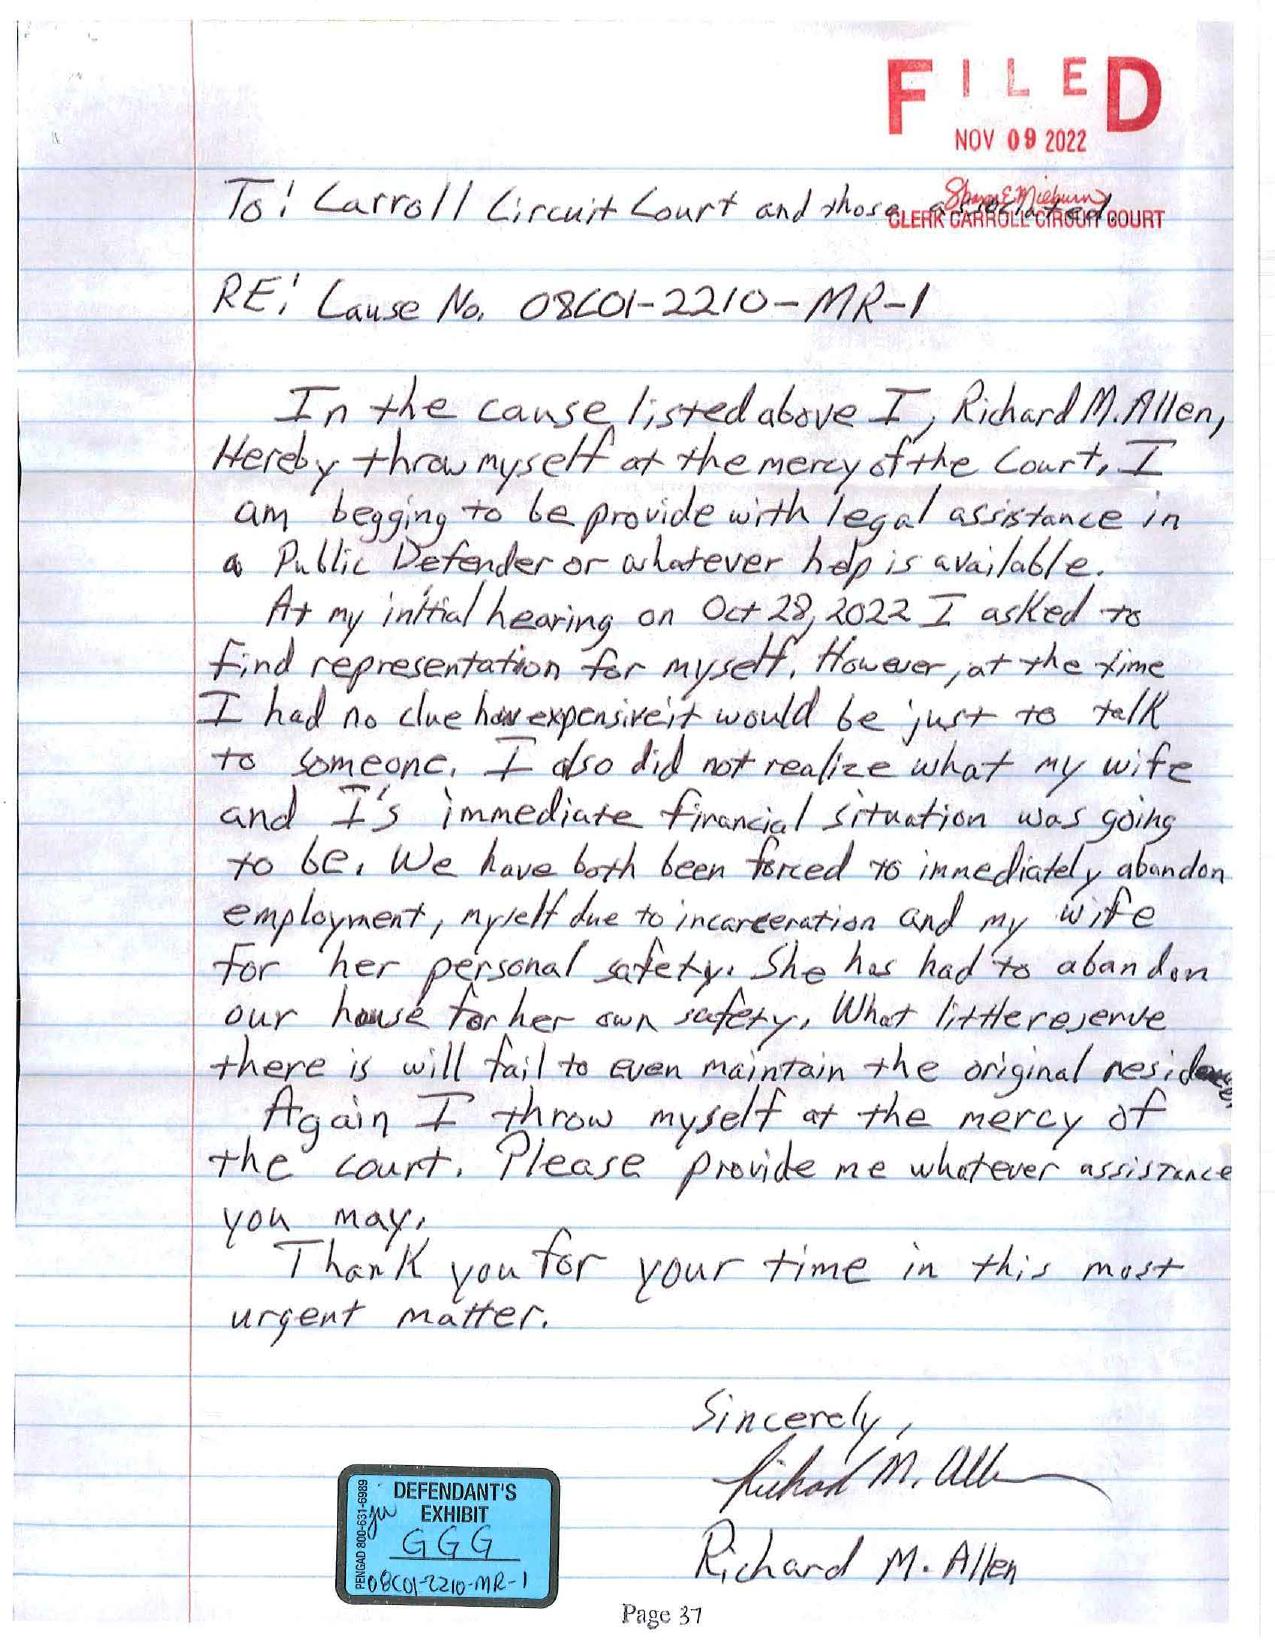 FILED
NOV 09 2022
To: Carroll Circuit Court and those associated.
CLERK CARROLL CIRCUIT COURT
RE: Cause No. 08C01-2210-MR-1
In the cause listed above I, Richard M. Allen,
Hereby throw myself at the mercy of the Court. I
am begging to be provide with legal assistance in
a Public Defender or whatever help is available.
At my initial hearing on Oct 28, 2022 I asked to
find representation for myself. However, at the time
I had no clue how expensive it would be just to talk
to someone. I also did not realize what my wife
and I's immediate financial situation was going
to be. We have both been forced to immediately abandon
employment, myself due to incarceration and my wife
for her personal safety. She has had to abandon
our house for her own safety. What little reserve
there is will fail to even maintain the original residence.
Again I throw myself at the mercy of
the court. Please provide me whatever assistance
you may.
Thank you for your time in this most
urgent matter.
Sincerely,
Richard M. Allen
Richard M. Allen
PENGAD 800-631-6989
DEFENDANT'S
EXHIBIT
GGG
08C01-2210-MR-1
Page 37